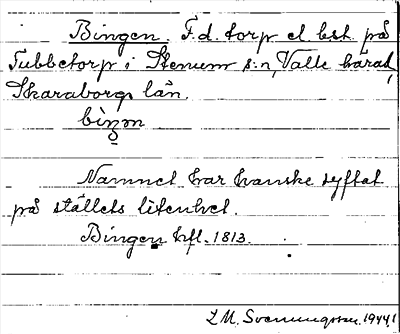 Bingen. F.d. torp el. bst på
Tubbetorp i Stenum s:n, Valle härad,
Skaraborgs län.
Namnet har kanske syftat
på ställets litenhet.
Bingen hfl. 1813.
L M. Svenungsson. 1944.